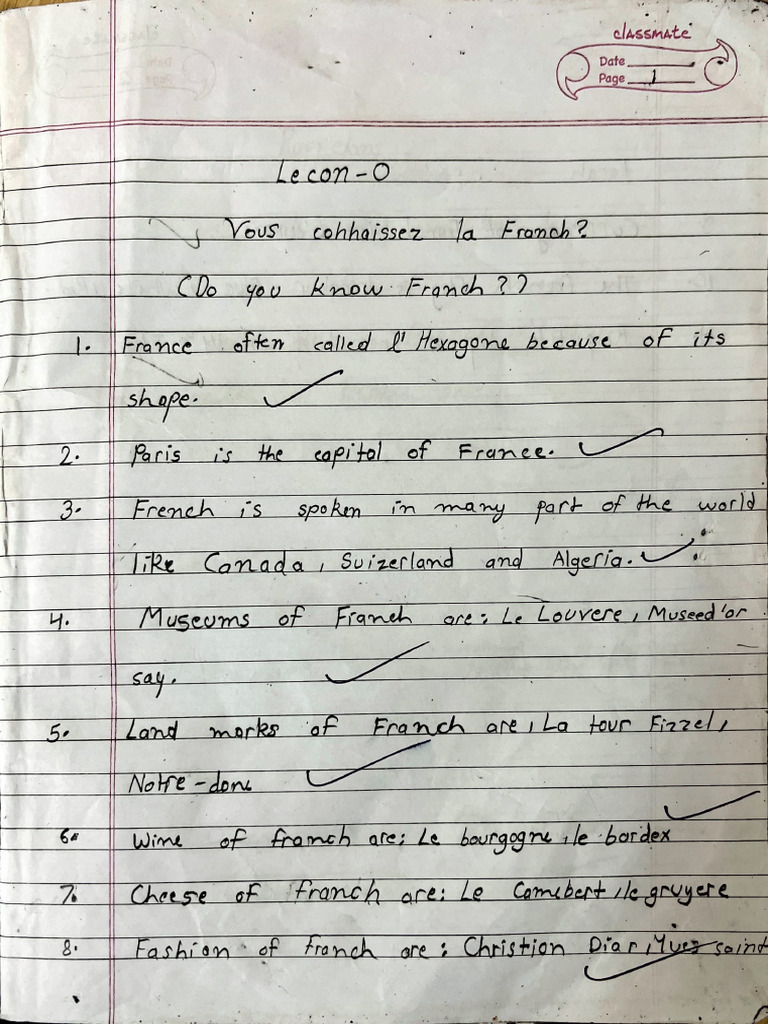 classmate
Date
Page 1
Lecon-0
Vous cohhaissez la Franch?
(Do you know Franch??)
1. France often called l'Hexagone because of its
shape.
2. Paris is the capital of France.
3. French is spoken in many part of the world
like Canada, Suizerland and Algeria.
4. Museums of Franch are: Le Louvere, Museed'or
say.
5. Land marks of Franch are, La tour Fizzel,
Notre-done
6. Wine of franch are: Le bourgogne, le bordex
7. Cheese of franch are: Le Camebert, le gruyere
8. Fashion of franch are: Christion Diar, Yves saint